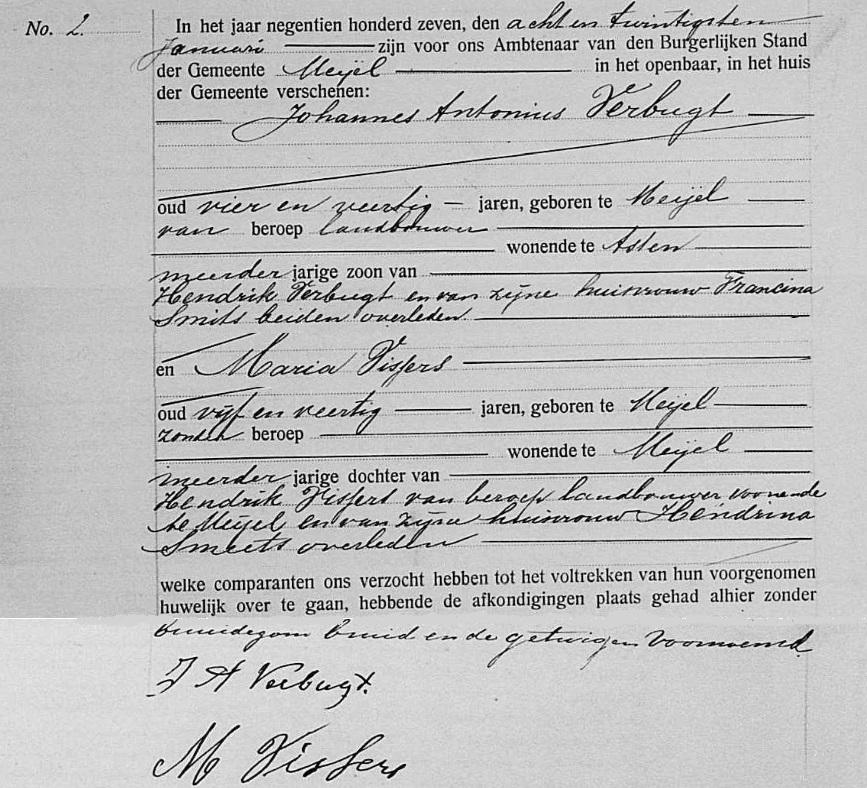 No. 2. In het jaar negentien honderd zeven, den acht en twintigsten
Januari zijn voor ons Ambtenaar van den Burgerlijken Stand
der Gemeente Meijel in het openbaar, in het huis
der Gemeente verschenen:
Johannes Antonius Verbugt
oud vier en veertig jaren, geboren te Meijel
van beroep landbouwer
wonende te Asten
meerder jarige zoon van
Hendrik Verbugt en van zijne huisvrouw Francina
Smits beiden overleden
en Maria Vissers
oud vijf en veertig jaren, geboren te Meijel
zonder beroep
wonende te Meijel
meerder jarige dochter van
Hendrik Vissers van beroep landbouwer wonende
te Meijel en van zijne huisvrouw Hendrina
Smeets overleden
welke comparanten ons verzocht hebben tot het voltrekken van hun voorgenomen
huwelijk over te gaan, hebbende de afkondigingen plaats gehad alhier zonder
bruidegom bruid en de getuigen voornoemd.
J A Verbugt.
M Vissers